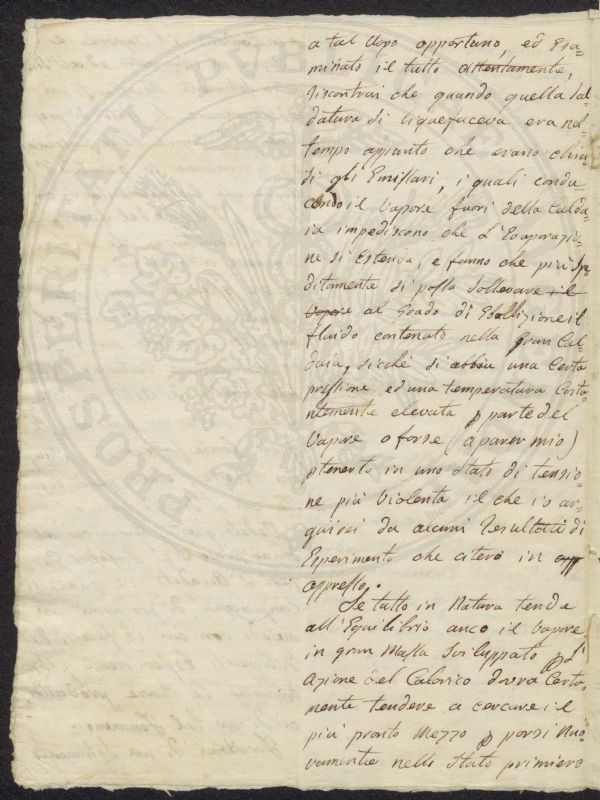 a tal Uopo apportano, ed Esa=
minato il tutto attentamente,
riscontrai che quando quella Sal=
datura si liquefaceva era nel
tempo appunto che erano chiu
si gli Emissari, i quali condu
cendo il Vapore fuori della Calda=
ia impediscono che l'Evaporazio=
ne si Estenda, e fanno che più Spe=
ditamente si possa Sollevare il
Vapore al Grado di Ebollizione il
fluido contenuto nella Gran Cal
daia, sicchè si abbia una Certa
pressione ed una temperatura Costa=
ntemente elevata p parte del
Vapore o forse (a parer mio)
ptenerlo in uno Stato di tensio=
ne più Violenta il che io ar=
guirei da alcuni resultati di
Esperimento che citerò in app
appresso.
Se tutto in Natura tende
all'Equilibrio anco il Vapore
in gran Massa Sviluppato p l'
azione del Calorico dovrà Certa=
mente tendere a cercare il
più pronto Mezzo p porsi Nuo
vamente nello Stato primiero
PUBL